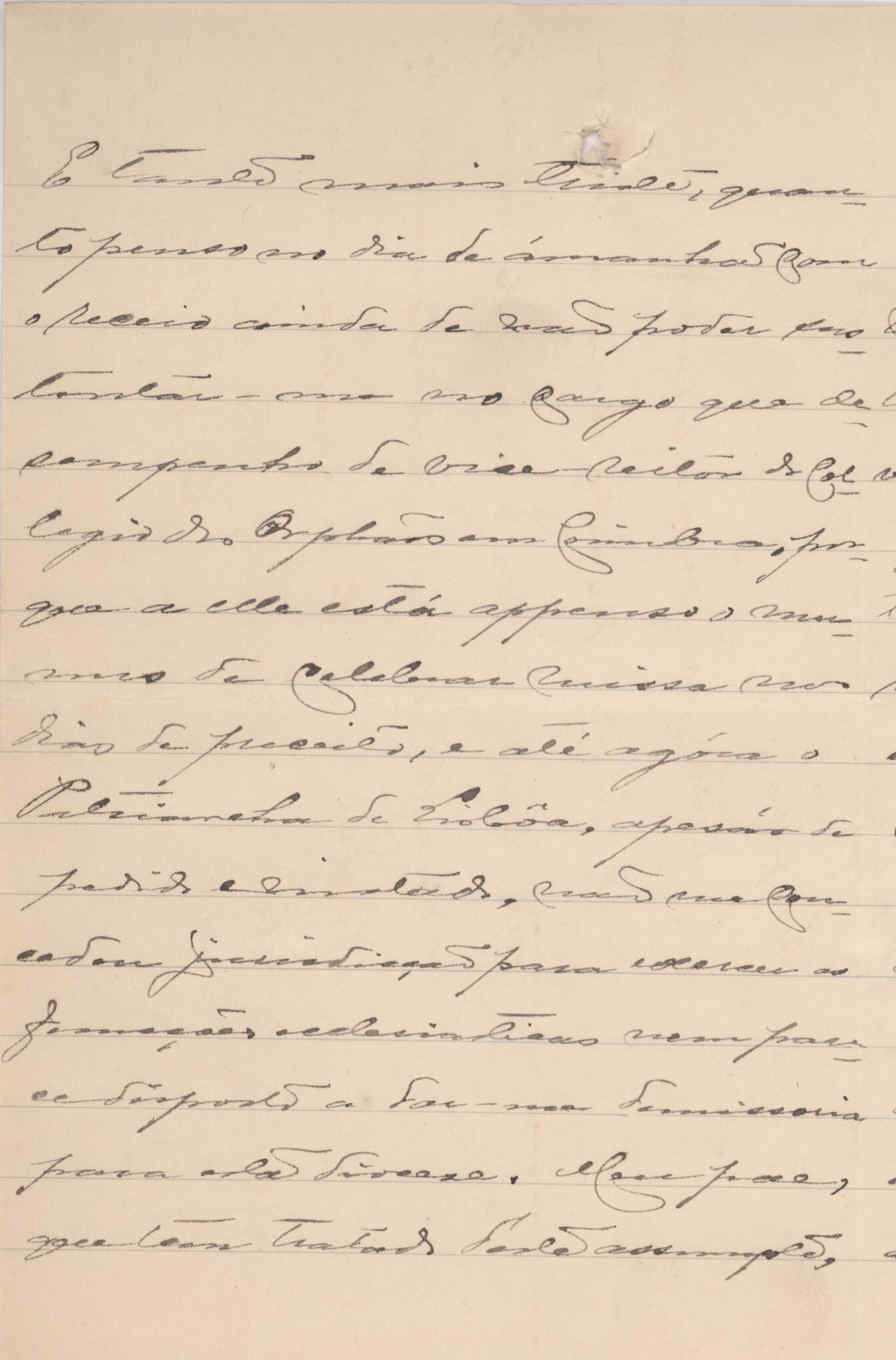 E tanto mais triste, quan-
to penso no dia de ámanhã com
o receio ainda de não poder sus-
tentar-me no cargo que de-
sempenho de vice-reitor do Col-
legio dos Orphãos em Coimbra, por-
que a elle está appenso o mu-
nus de celebrar missa nos
dias de preceito, e até agóra o
Patriarcha de Lisbôa, apesar de
pedido e instado, não me con-
cedeu jurisdicção para exercer as
funcções ecclesiasticas nem pare-
ce disposto a dar-me demissoria
para esta diocese. Meu pae,
que tem tratado d'este assumpto,